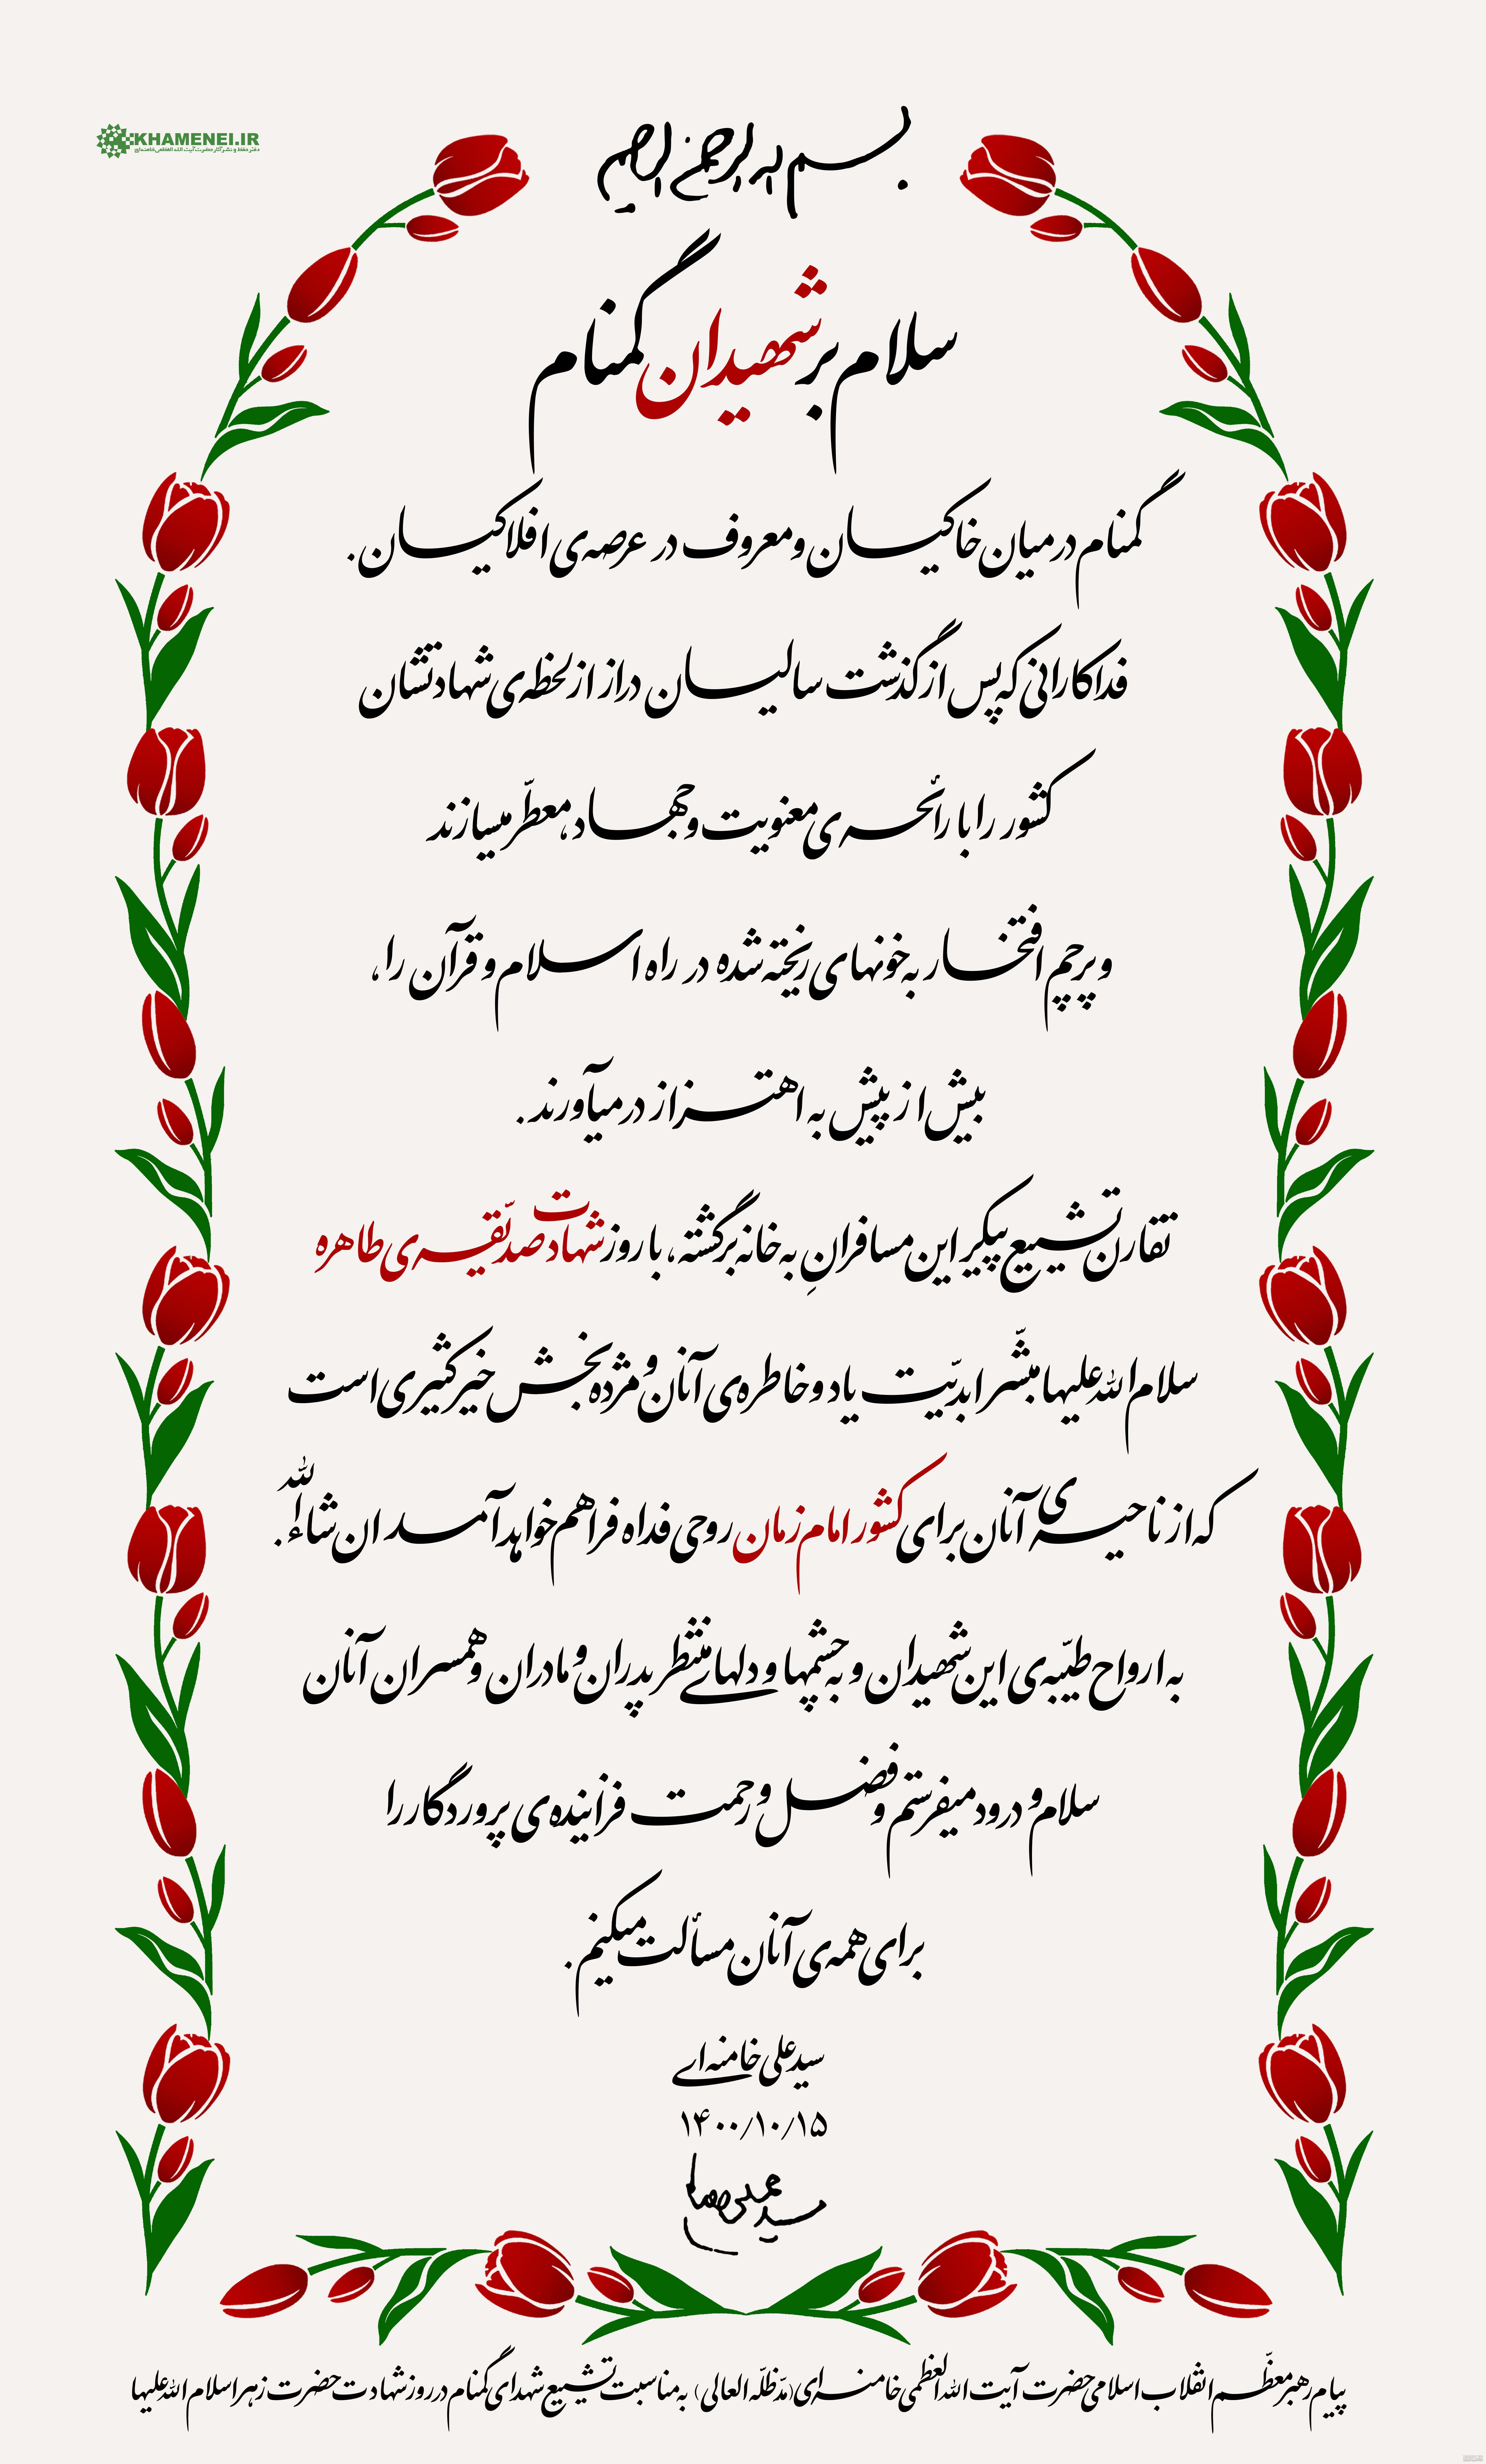 KHAMENEI.IR
دفتر حفظ و نشر آثار حضرت آیت‌الله العظمی خامنه‌ای
بسم الله الرحمن الرحیم
سلام بر شهیدان گمنام
گمنام در میان خاکیان و معروف در عرصه‌ی افلاکیان.
فداکارانی که پس از گذشت سالیان دراز از لحظه‌ی شهادتشان
کشور را با رائحه‌ی معنویت و جهاد، معطّر میسازند
و پرچم افتخار به خونهای ریخته شده در راه اسلام و قرآن را،
بیش از پیش به اهتزاز درمیآورند.
تقارن تشییع پیکر این مسافرانِ به خانه برگشته، با روز شهادت صدّیقه‌ی طاهره
سلام‌الله‌علیها مبشّر ابدیّت یاد و خاطره‌ی آنان و مژده‌بخش خیر کثیری است
که از ناحیه‌ی آنان برای کشور امام زمان روحی فداه فراهم خواهد آمد ان شاءالله.
به ارواح طیّبه‌ی این شهیدان و به چشمها و دلهای منتظر پدران و مادران و همسران آنان
سلام و درود میفرستم و فضل و رحمت فزاینده‌ی پروردگار را
برای همه‌ی آنان مسألت میکنم.
سید علی خامنه‌ای
۱۴۰۰/۱۰/۱۵
پیام رهبر معظّم انقلاب اسلامی حضرت آیت الله العظمی خامنه‌ای (مدّ ظلّه العالی) به مناسبت تشییع شهدای گمنام در روز شهادت حضرت زهرا سلام الله علیها